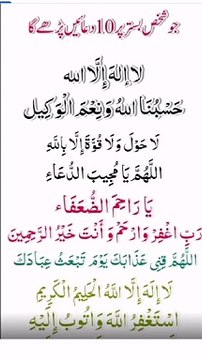 جو شخص بستر پر 10 دعائیں پڑھے گا
لا إلهَ إِلَّا الله
حَسْبُنَا اللهُ وَنِعْمَ الْوَكِيل
لَا حَوْلَ وَلَا قُوَّةَ إِلَّا بِاللَّهِ
اللَّهُمَّ يَا مُجِيبَ الدُّعَاءِ
يَا رَاحِمَ الضُّعَفَاء
رَبِّ اغْفِرْ وَارْحَمْ وَ أَنْتَ خَيْرُ الرَّحِمِينَ
اللَّهُمَّ قِنِي عَذَابَكَ يَوْمَ تَبْعَثُ عِبَادَكَ
لَا إِلَهَ إِلَّا اللَّهُ الْحَلِيمُ الْكَرِيمُ
اسْتَغْفِرُ اللَّهَ وَاتُوبُ إِلَيْهِ